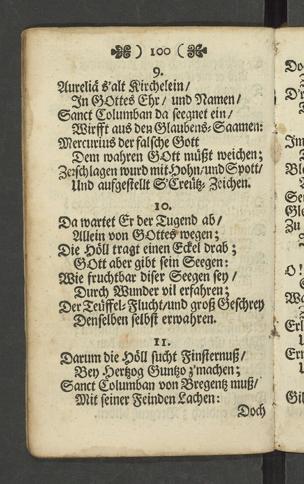 ) 100 (
9.
Aureliâ s'alt Kirchelein/
In GOttes Ehr/ und Namen/
Sanct Columban da seegnet ein/
Wirfft aus den Glaubens-Saamen:
Mercurius der falsche Gott
Dem wahren GOtt müßt weichen;
Zerschlagen wurd mit Hohn/und Spott/
Und aufgestellt S'Creütz-Zeichen.
10.
Da wartet Er der Tugend ab/
Allein von GOttes wegen;
Die Höll tragt einen Eckel drab;
GOtt aber gibt sein Seegen:
Wie fruchtbar diser Seegen sey/
Durch Wunder vil erfahren;
Der Teüffel-Flucht/und groß Geschrey
Denselben selbst erwahren.
11.
Darum die Höll sucht Finsternuß/
Bey Hertzog Guntzo z'machen;
Sanct Columban von Bregentz muß/
Mit seiner Feinden Lachen:
Doch